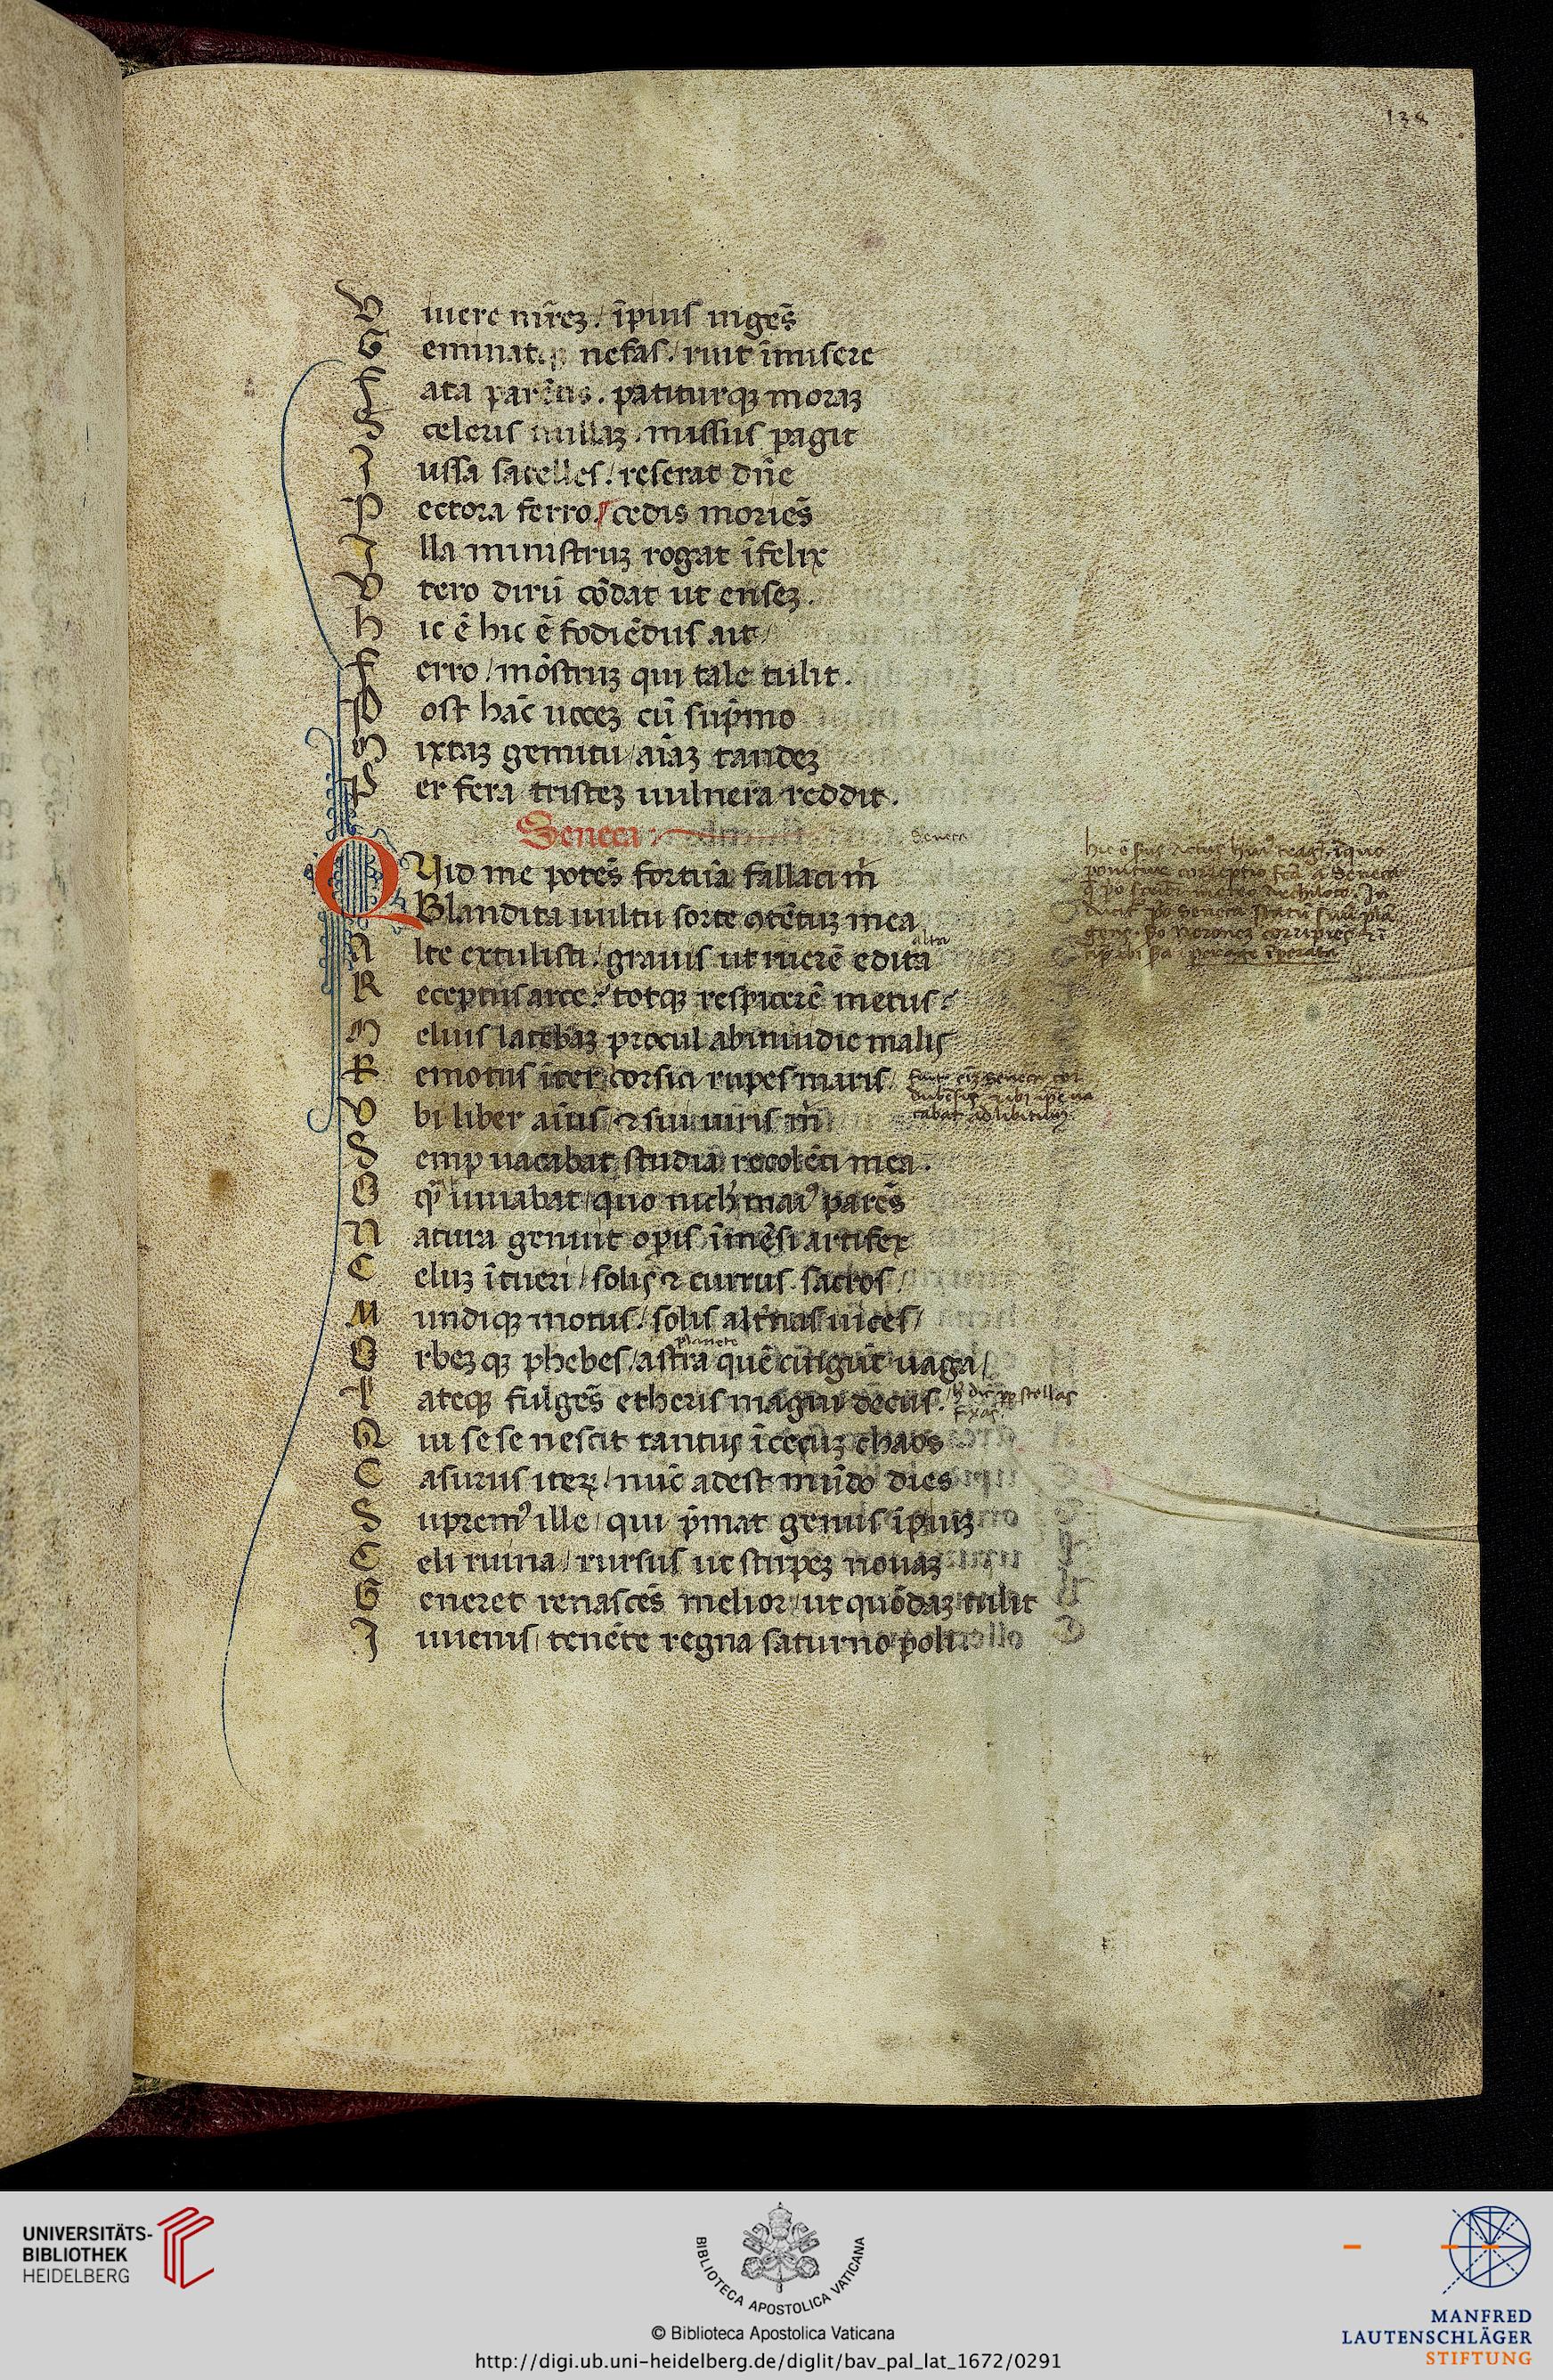 138
V iuere mr̄eꝫ / īpius ingēs
G eminatq; nefas / ruit īmisere
F ata parētis . patiturqꝫ moraꝫ
S celeris nullaꝫ . missus pagit
I ussa satelles / reserat dn̄e
P ectora ferro / cedis moriēs
I lla ministruꝫ rogat īfelix
V tero dirū cōdat ut enseꝫ .
h ic ē hic ē fodiēdus ait /
F erro / mōstruꝫ qui tale tulit .
P ost hāc uoceꝫ cū sup̄mo
M ixtaꝫ gemitu / aīaꝫ tandeꝫ
P er fera tristeꝫ uulnera reddit .
Seneca :
Seneca
QVid me potēs fortūa fallaci m̄
Blandita uultu sorte ꝯtētuꝫ mea
alta
A lte extulisti / grauis ut ruerē edita
R eceptus arce / totqꝫ respicerē metus
M elius latebaꝫ procul ab inuidie malis
R emotus iter corsici rupes maris
V bi liber aīus ⁊ sui iuris m̄
tabat ad libitum
S emp uacabat studia recolēti mea .
O q̄ iuuabat / quo nich mai⁹ parēs
N atura genuit opis īmēsi artifex
C eluꝫ ītueri / solis ⁊ currus sacros /
M undiqꝫ motus / solis alt̄nas uices /
planete
O rbeꝫqꝫ phebes / astra quē cingūt uaga /
L ateqꝫ fulgēs etheris magni decus .
stellas
fixas
Q ui se senescit tantus ī cecuꝫ chaos
C asurus iteꝝ / nūc adest mūdo dies
S uprem⁹ ille / qui p̄mat genus īpiuꝫ
C eli ruina / rursus ut stirpeꝫ nouaꝫ
G eneret renascēs melior / ut quōdaꝫ tulit
I uuenis / tenēte regna saturno poli
UNIVERSITÄTS-
BIBLIOTHEK
HEIDELBERG
BIBLIOTECA APOSTOLICA VATICANA
© Biblioteca Apostolica Vaticana
http://digi.ub.uni-heidelberg.de/diglit/bav_pal_lat_1672/0291
MANFRED
LAUTENSCHLÄGER
STIFTUNG